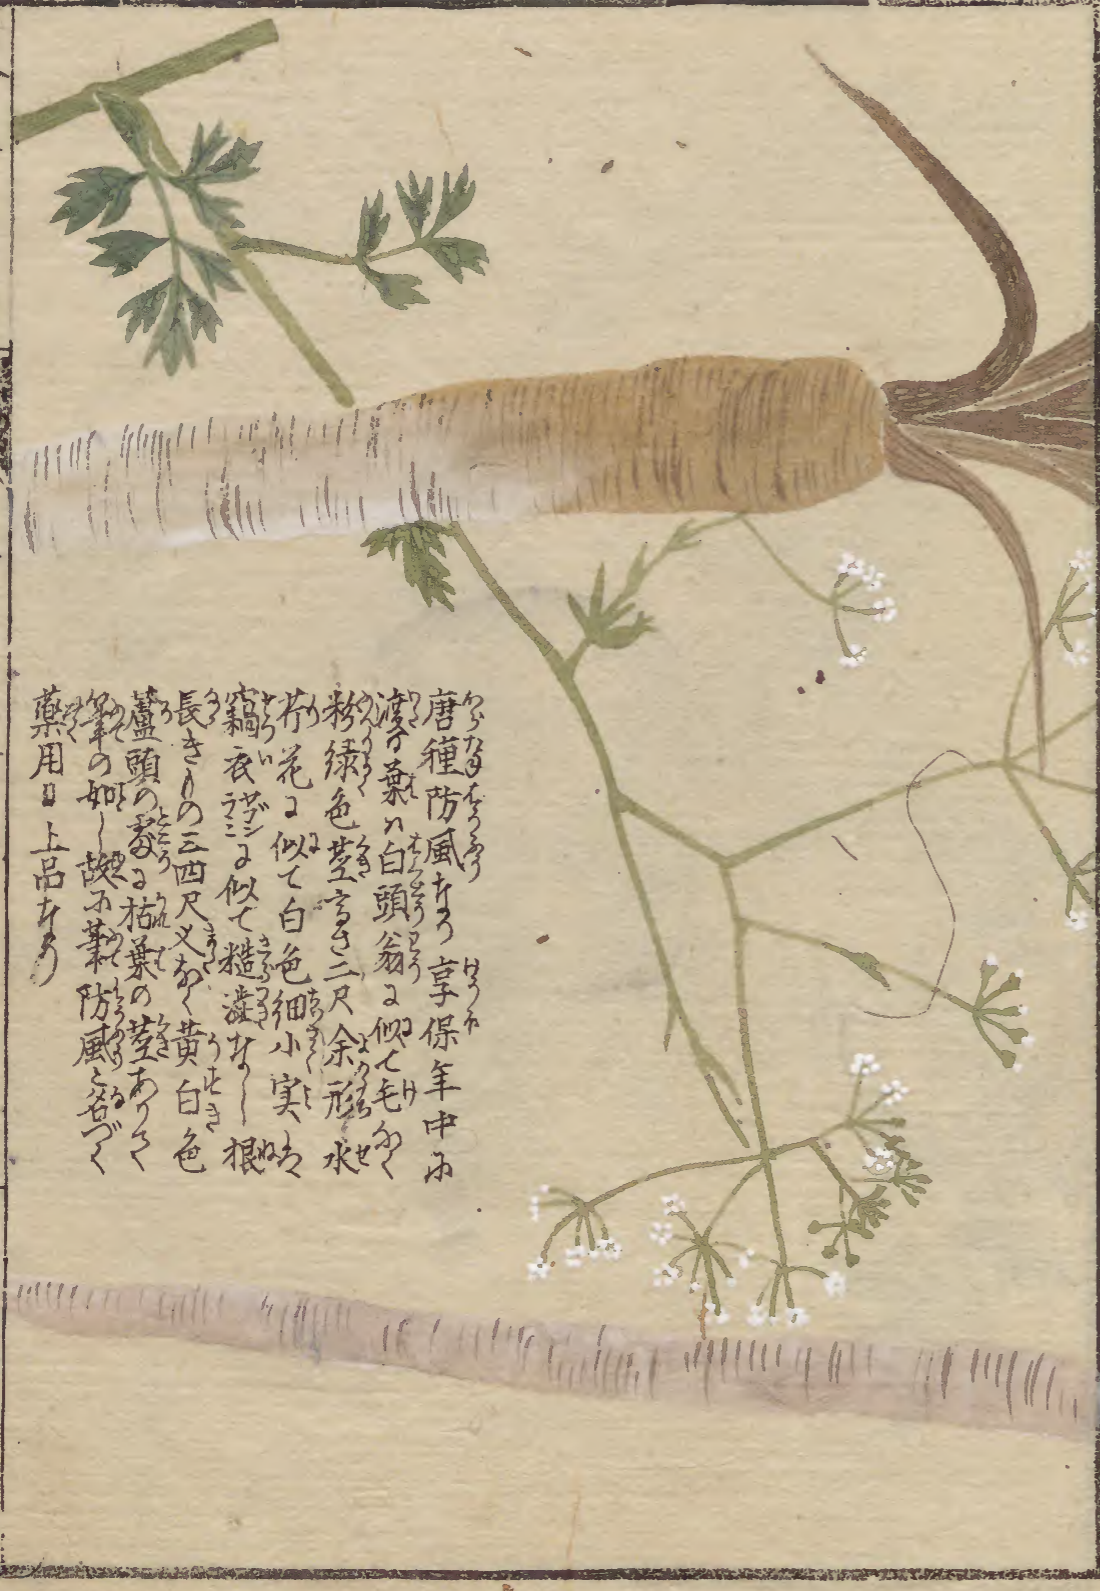 唐種防風なり享保年中に
渡る葉ハ白頭翁に似て毛なく
粉緑色茎高さ二尺余形水
芹花に似て白色細小実は
竊衣ヤブジラミに似て糙澁なし根
長きもの三四尺又なく黄白色
蘆頭の処に枯葉の茎ありて
筆の如し故に筆防風と名づく
薬用日上品なり